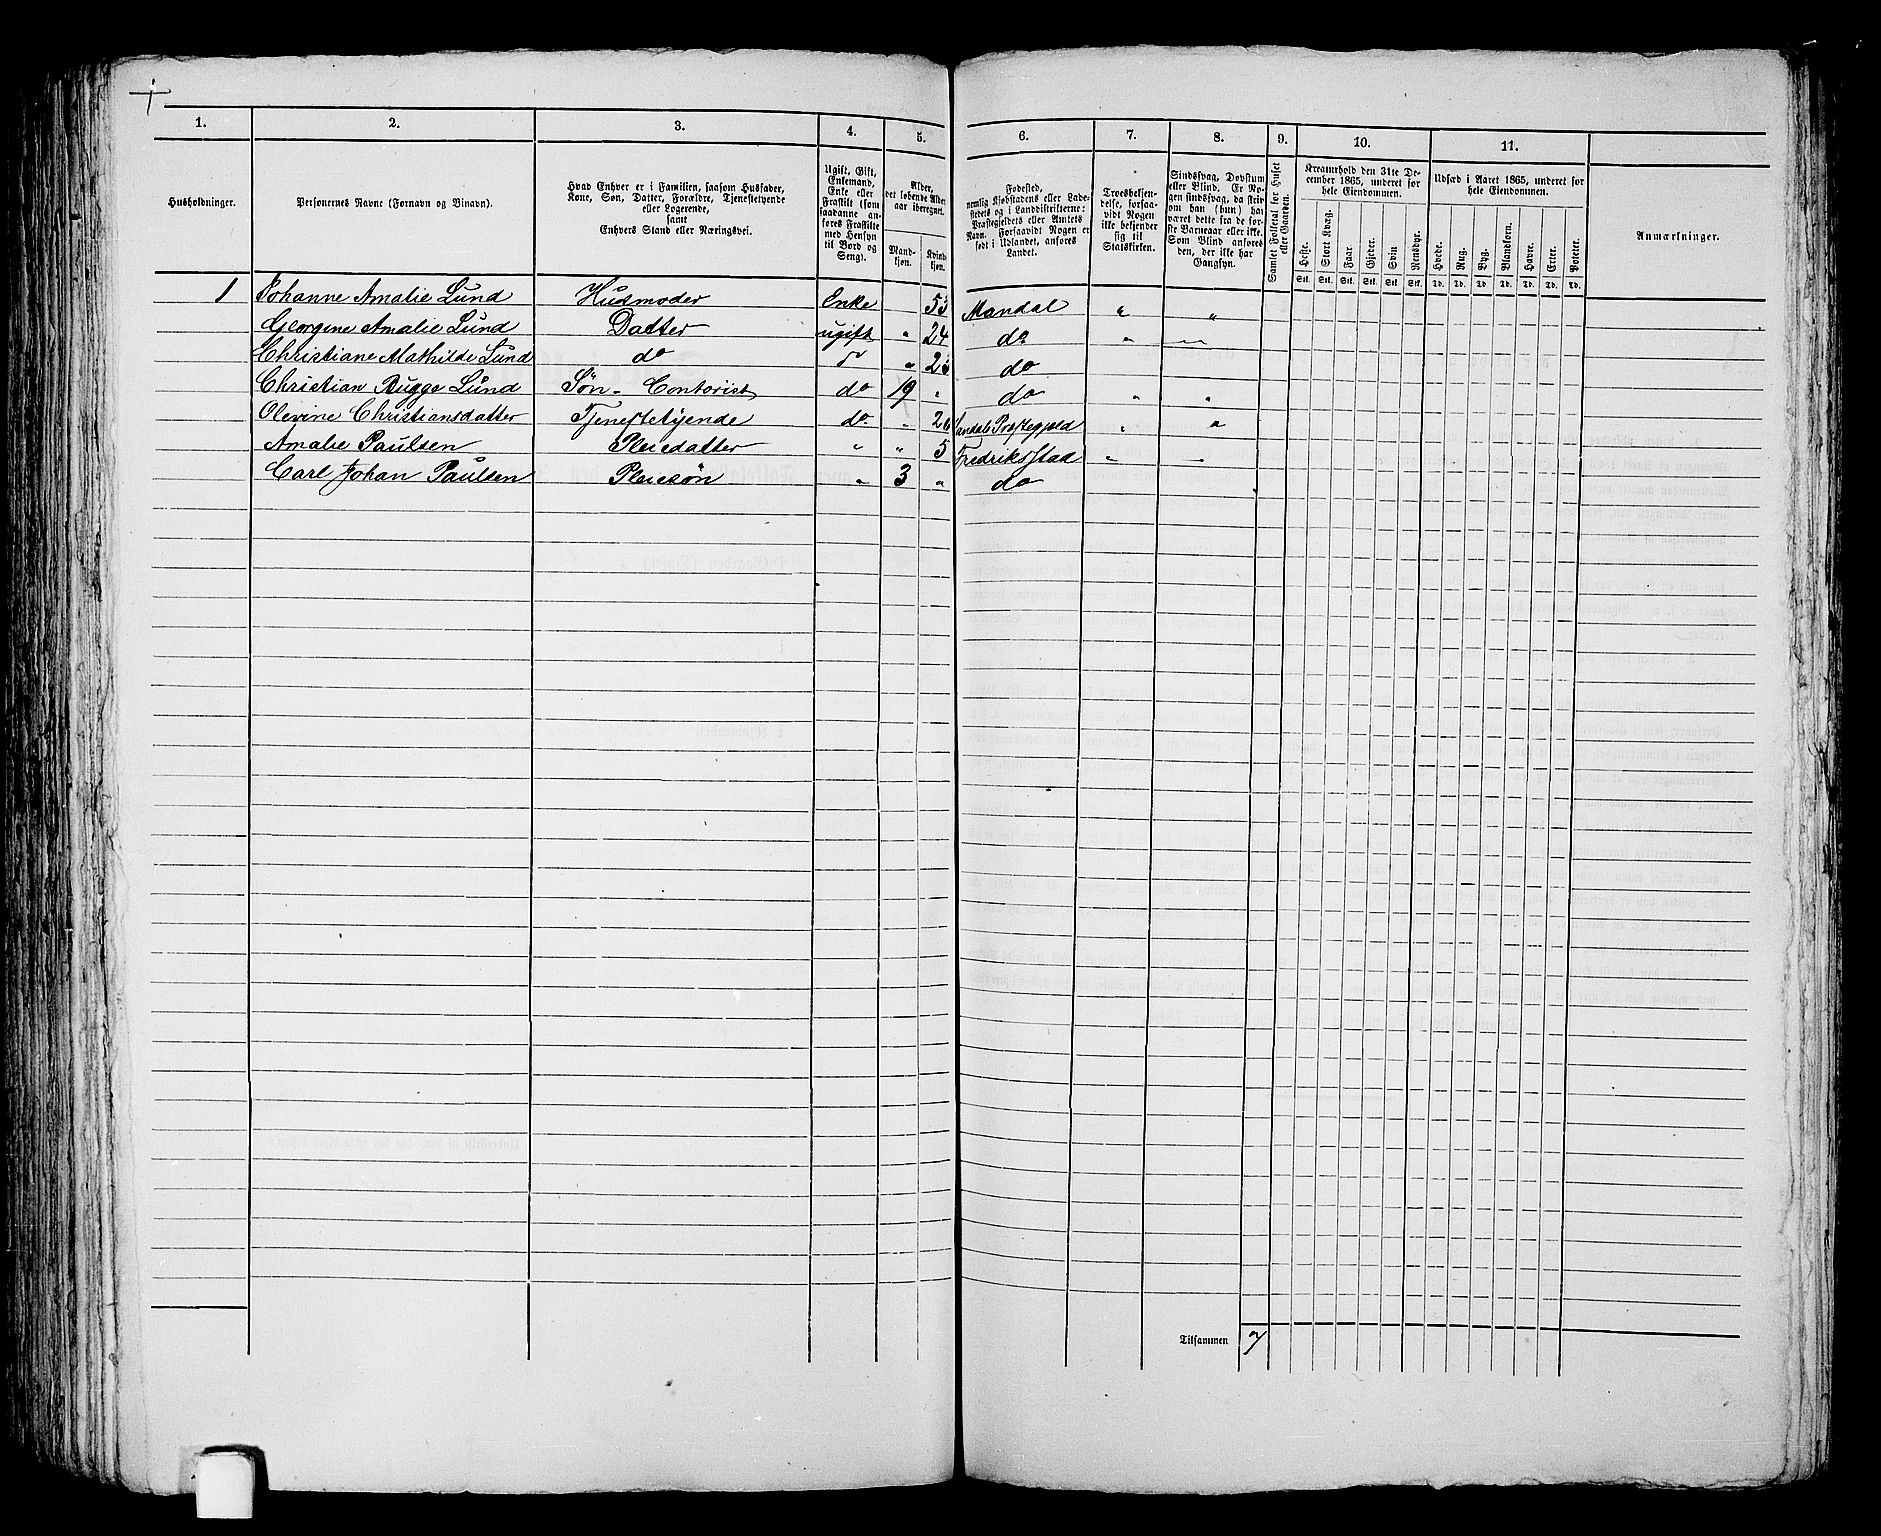 1. 2. 3. 4. 5. 6. 7. 8. 9. 10. 11.
Husholdninger.
Personernes Navne (Fornavn og Binavn).
Hvad Enhver er i Familien, saasom Husfader,
Kone, Søn, Datter, Forældre, Tjenestetyende
eller Logerende,
samt
Enhvers Stand eller Næringsvei.
Ugift, Gift,
Enkemand,
Enke eller
Fraskilt (som
saadanne an-
føres Fraskilte
med Hensyn
til Bord og
Seng).
Alder,
det løbende Alders-
aar iberegnet.
Mand-
kjøn.
Kvinde-
kjøn.
Fødested,
nemlig Kjøbstadens eller Lade-
stedets og i Landdistrikterne:
Præstegjeldets eller Amtets
Navn. Forsaavidt Nogen er
født i Udlandet, anføres
Landet.
Troesbekjen-
delse, forsaa-
vidt Nogen
ikke bekjender
sig til
Statskirken.
Sindssvag, Døvstum
eller Blind. Er No-
gen sindssvag, da skrives
om han (hun) har
været dette fra de før-
ste Barneaar eller ikke.
Som Blind anføres
den, der ikke har
Gangsyn.
Samlet Folketal for Huset
eller Gaarden.
Kreaturhold den 31te De-
cember 1865, underet for
hele Eiendommen.
Heste. Stort Kvæg. Faar. Gjeder. Svin Rensdyr.
Stk. Stk. Stk. Stk. Stk. Stk.
Udsæd i Aaret 1865, underet for
hele Eiendommen.
Hvede. Rug. Byg. Blandkorn. Havre. Erter. Poteter.
Td. Td. Td. Td. Td. Td. Td.
Anmærkninger.
1 Johanne Amalie Lund Husmoder Enke 53 Mandal " "
Georgine Amalie Lund Datter ugift " 24 do " "
Christiane Mathilde Lund do do " 23 do
Christian Bugge Lund Søn - Contorist do 19 " do " "
Olevine Christiansdatter Tjenestetyende do " 26 Mandals Præstegjeld " "
Amalie Paulsen Pleiedatter " " 5 Fredriksstad " "
Carl Johan Paulsen Pleiesøn " 3 " do
Tilsammen 7